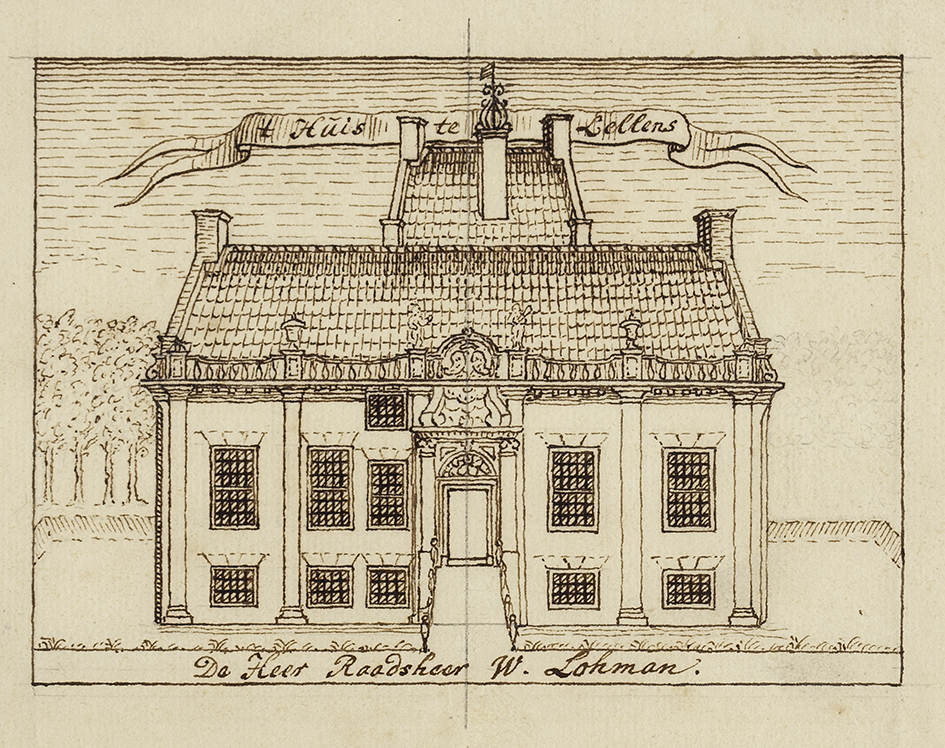 't Huis te Lellens
De Heer Raadsheer W. Lohman.